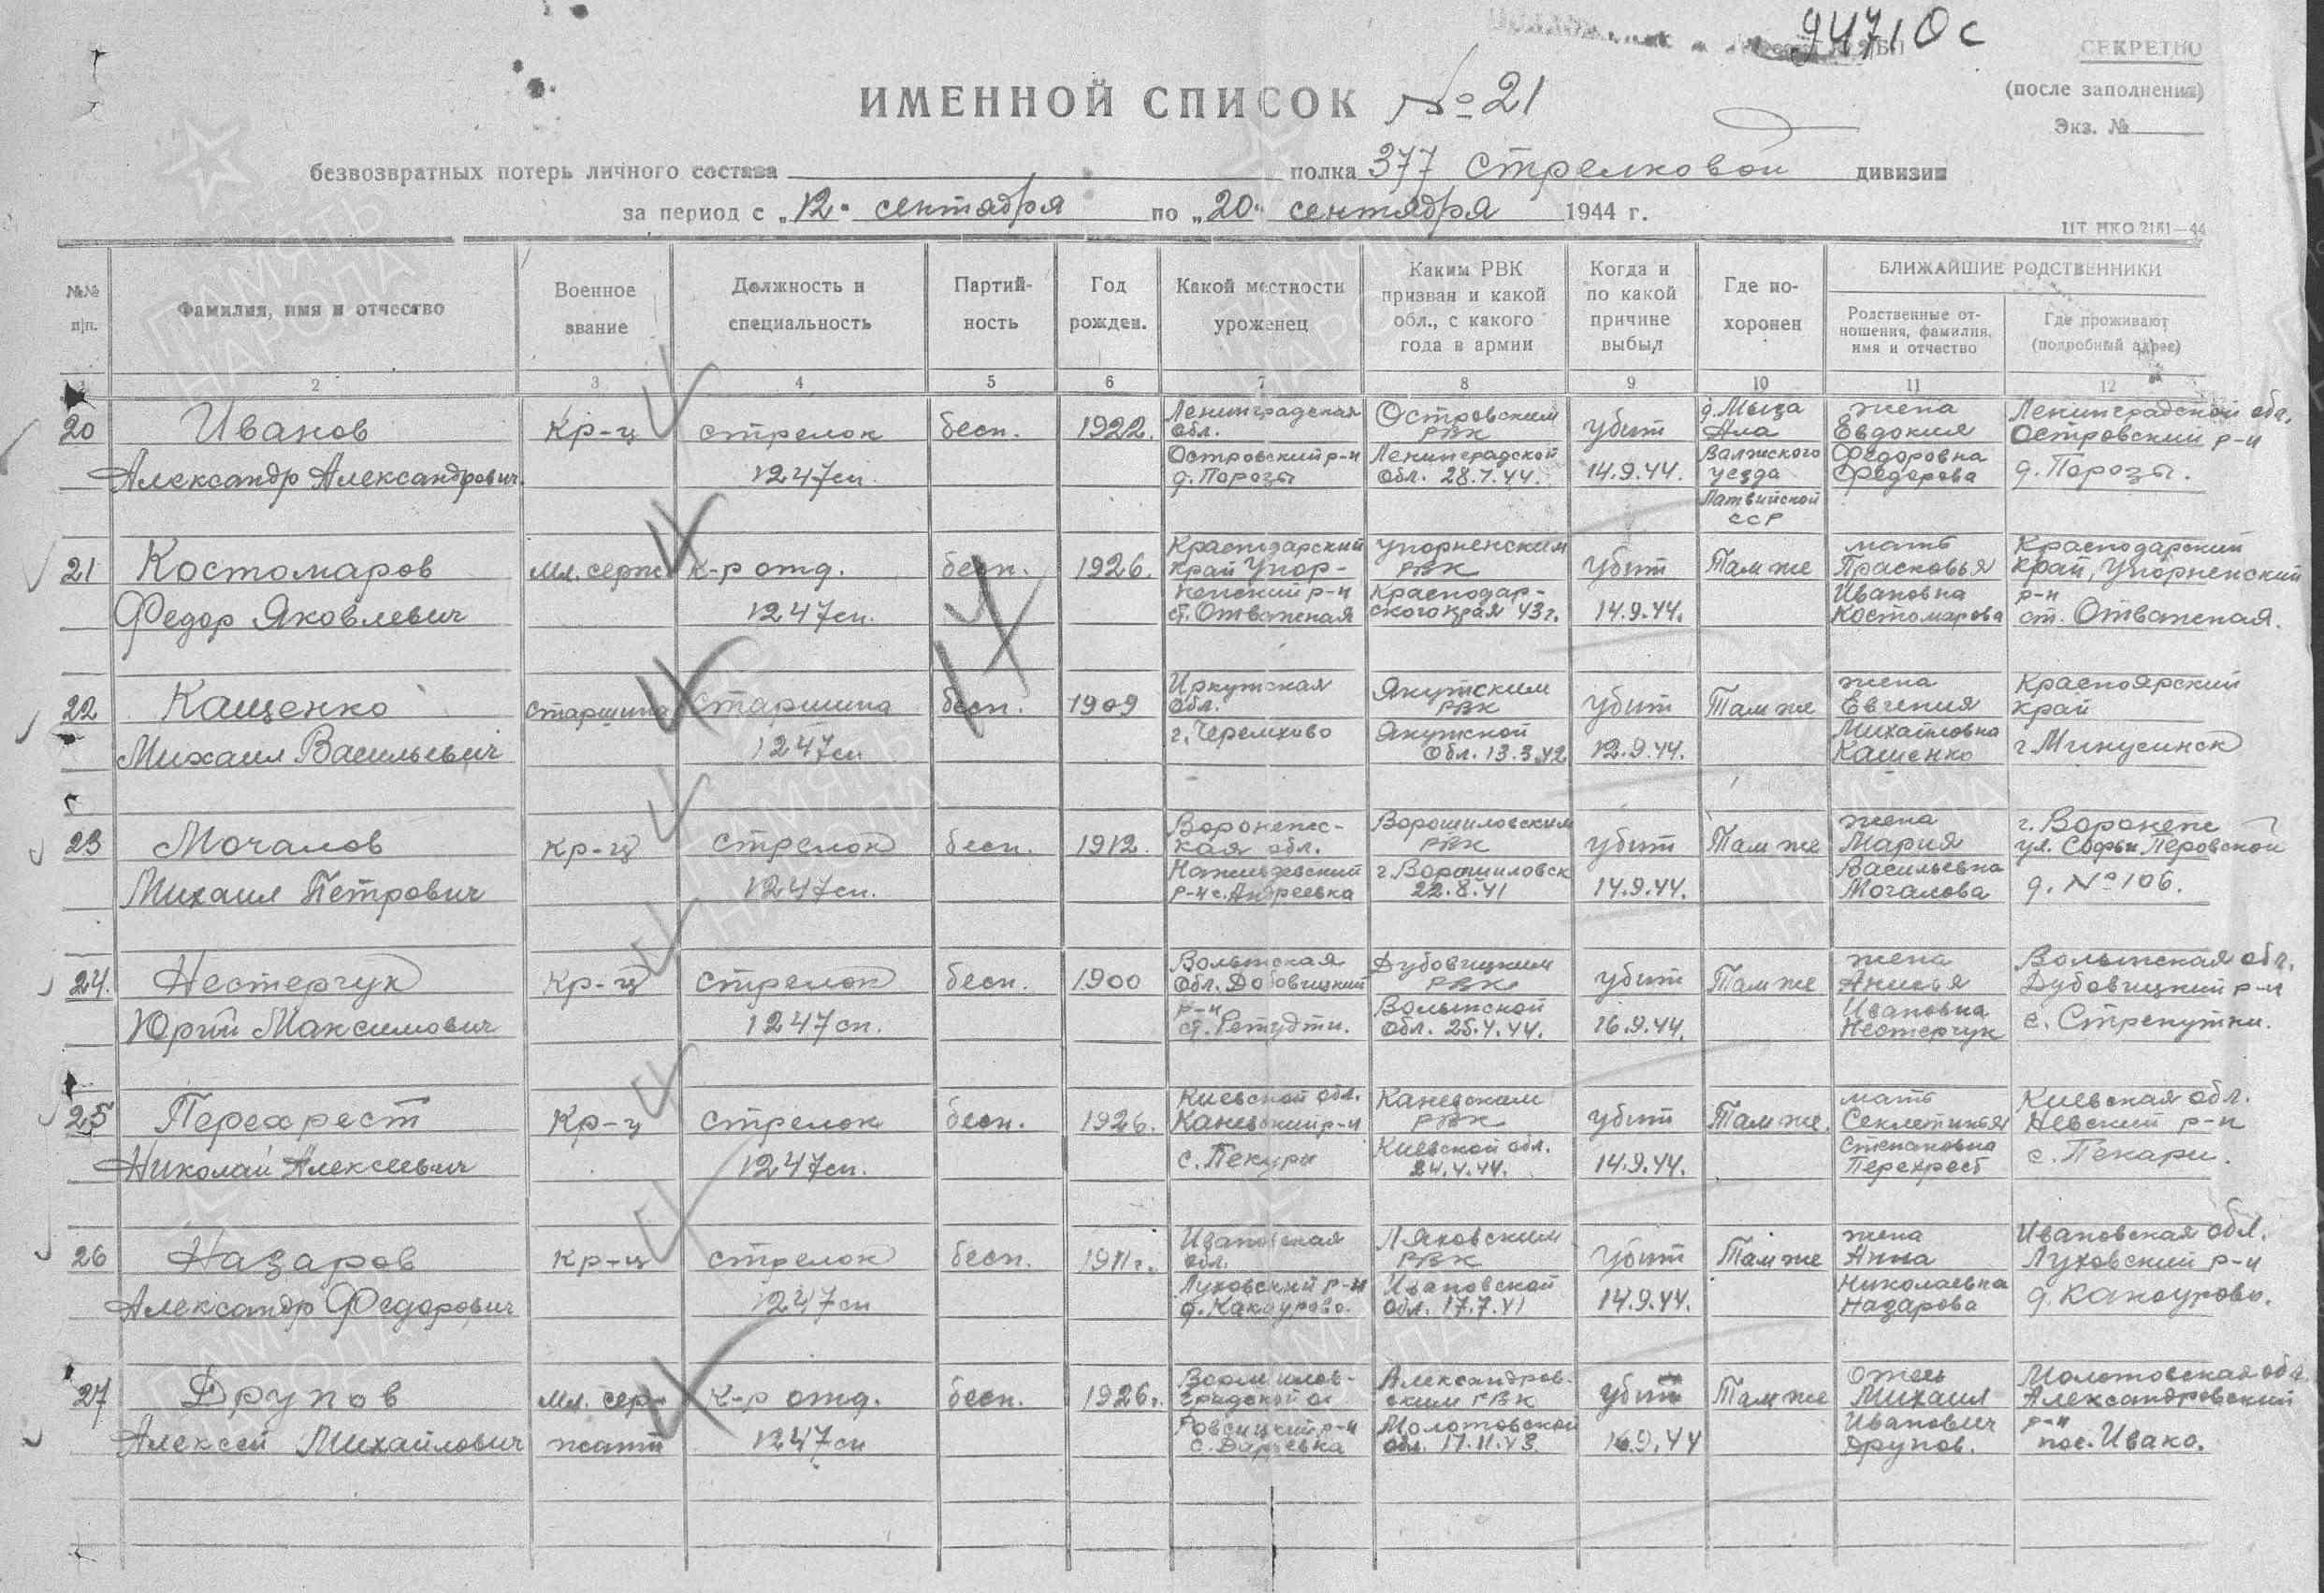 94710с
СЕКРЕТНО
(после заполнения)
Экз. №
ИМЕННОЙ СПИСОК №21
безвозвратных потерь личного состава полка 377 стрелковой дивизии
за период с „12" сентября по „20" сентября 1944 г.
ЦТ НКО 2181—44
№№ п/п.
Фамилия, имя и отчество
Военное звание
Должность и специальность
Партийность
Год рожден.
Какой местности уроженец
Каким РВК призван и какой обл., с какого года в армии
Когда и по какой причине выбыл
Где похоронен
БЛИЖАЙШИЕ РОДСТВЕННИКИ
Родственные отношения, фамилия, имя и отчество
Где проживают (подробный адрес)
2 3 4 5 6 7 8 9 10 11 12
20 Иванов Александр Александрович
кр-ц
стрелок 1247сп.
бесп.
1922.
Ленинградская обл. Островский р-н д. Порозы
Островским РВК Ленинградской обл. 28.7.44.
убит 14.9.44.
д. Мыза Ала Валжского уезда Латвийской ССР
жена Евдокия Федоровна Федорова
Ленинградской обл. Островский р-н д. Порозы.
21 Костомаров Федор Яковлевич
Мл. серж
к-р отд. 1247сп.
бесп.
1926.
Краснодарский край Упорненский р-н ст. Отважная
Упорненским РВК Краснодарского края 43г.
убит 14.9.44.
Там же
мать Прасковья Ивановна Костомарова
Краснодарский край, Упорненский р-н ст. Отважная.
22 Кащенко Михаил Васильевич
старшина
старшина 1247сп
бесп.
1909
Иркутская обл. г. Черемхово
Якутским РВК Якутской обл. 13.3.42
убит 12.9.44.
Там же
жена Евгения Михайловна Кащенко
Красноярский край г. Минусинск
23 Мочалов Михаил Петрович
кр-ц
стрелок 1247сп.
бесп.
1912.
Воронежская обл. р-н с. Андреевка
Ворошиловским РВК г. Ворошиловск 22.8.41
убит 14.9.44.
Там же
жена Мария Васильевна Мочалова
г. Воронеж ул. Софьи Перовской д. №106.
24. Нестерчук Юрий Максимович
кр-ц
стрелок 1247сп.
бесп.
1900
Волынская обл. Дубовицкий р-н
Дубовицким РВК Волынской обл. 25.4.44.
убит 16.9.44.
Там же
жена Анисья Ивановна Нестерчук
Волынская обл. Дубовицкий р-н с. Стрепутки.
25 Перехрест Николай Алексеевич
кр-ц
стрелок 1247сп.
бесп.
1926.
Киевской обл. Каневский р-н с. Пекури
Каневским РВК Киевской обл. 24.4.44.
убит 14.9.44.
Там же.
мать Степановна Перехрест
Киевская обл. Невский р-н с. Пекари.
26 Назаров Александр Федорович
кр-ц
стрелок 1247сп
бесп.
1911г.
Ивановская обл. Луховский р-н д. Какаурово.
РВК Ивановской обл. 17.7.41
убит 14.9.44.
Там же
жена Анна Николаевна Назарова
Ивановская обл. Луховский р-н д. Какаурово.
27 Друпов Алексей Михайлович
Мл. сержант
К-р отд. 1247сп
бесп.
1926г.
с. Дарьевка
Александровским РВК Молотовской обл. 17.11.43.
убит 16.9.44
Там же
отец Михаил Иванович Друпов.
Молотовская обл. Александровский р-н пос. Ивако.
ПАМЯТЬ НАРОДА